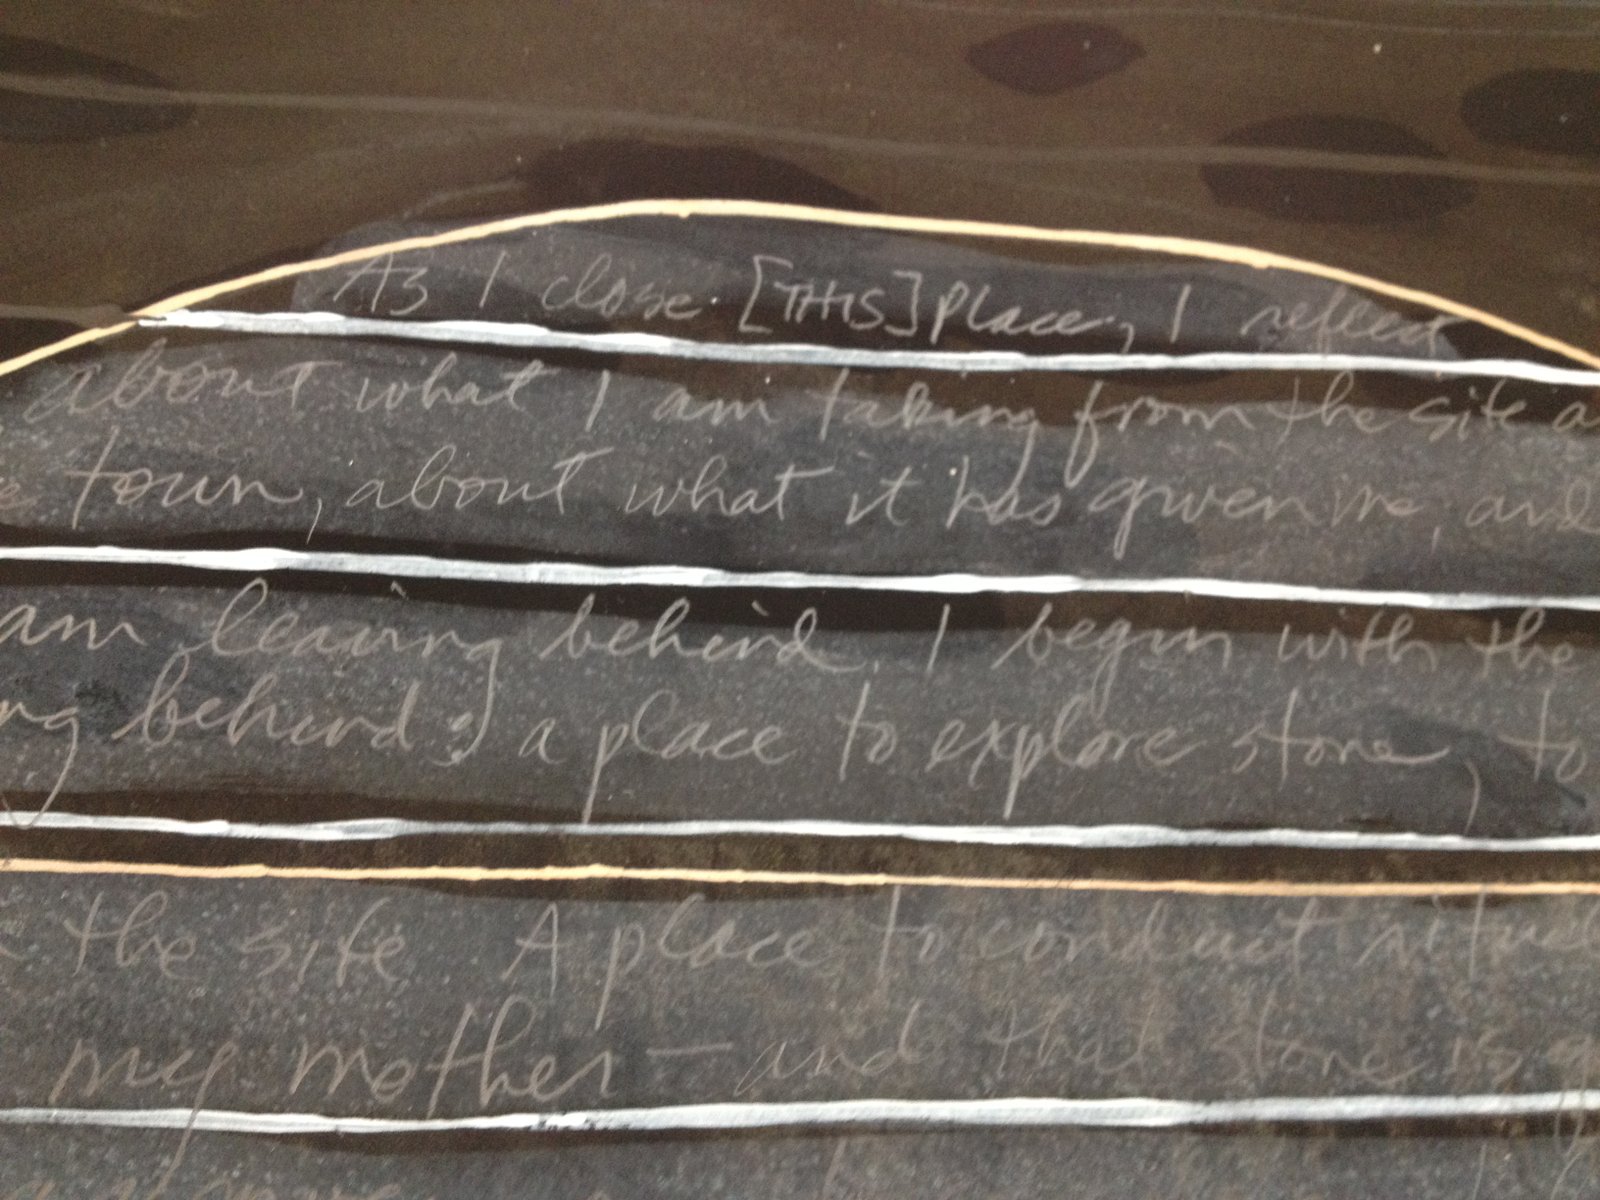 As I close [THIS] place, I reflect
about what I am taking from the site
town, about what it has given me, and
am leaving behind. I begin with the
behind: a place to explore stone, to
the site A place to conduct
my mother — and that stone is